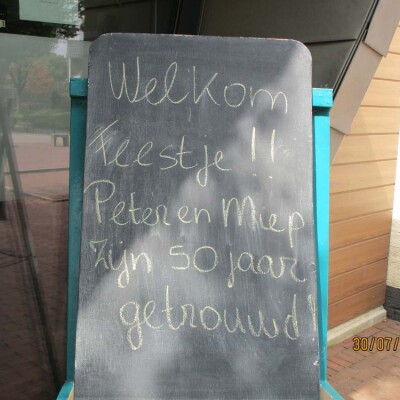 Welkom
Feestje !!
Peter en Miep
zijn 50 jaar
getrouwd!
30/07/